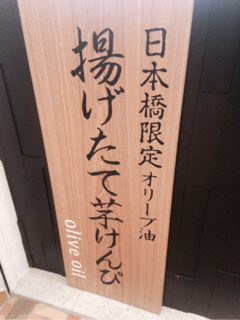 日本橋限定オリーブ油
揚げたて芋けんぴ
olive oil